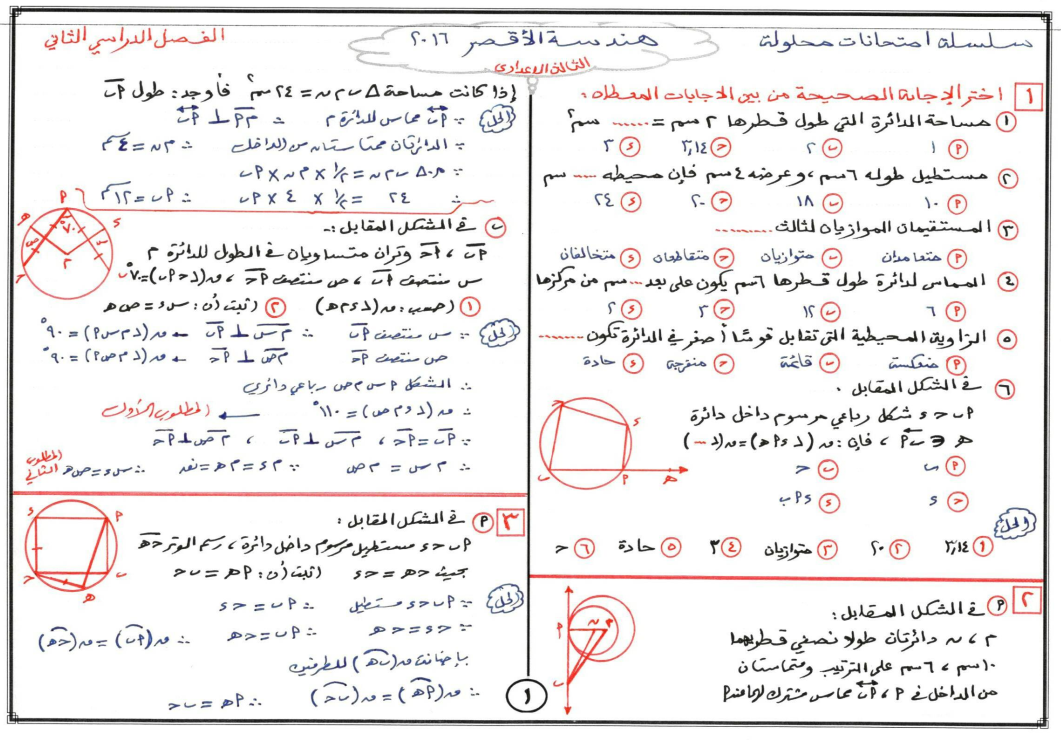 سلسلة امتحانات محلولة
هندسة الأقصر ٢٠١٦
الثالث الإعدادى
الفصل الدراسي الثاني
١ اختر الإجابة الصحيحة من بين الاجابات المعطاه :
١ مساحة الدائرة التي طول قطرها ٢ سم = ....... سم٢
٩ ١ ب ٢ ح ٣,١٤ ء ٣
٢ مستطيل طوله ٦ سم ، وعرضه ٤ سم فإن محيطه .... سم
٩ ١٠ ب ١٨ ح ٢٠ ء ٢٤
٣ المستقيمان الموازيان لثالث .........
٩ متعامدان ب متوازيان ح متقاطعان ء متخالفان
٤ المماس لدائرة طول قطرها ٦ سم يكون على بعد .... سم من مركزها
٩ ٦ ب ١٢ ح ٣ ء ٢
٥ الزاوية المحيطية التى تقابل قوسًا أصغر في الدائرة تكون .......
٩ منعكسة ب قائمة ح منفرجة ء حادة
٦ في الشكل المقابل .
٩ ب ح ء شكل رباعي مرسوم داخل دائرة
ه ∈ ب٩ ، فإن : ق(ء٩ه) = ق(....)
٩ ب ب ح
ح ء ء ء٩ب
الحل
١ ٣,١٤ ٢ ٢٠ ٣ متوازيان ٤ ٣ ٥ حادة ٦ ح
٢ ٩ في الشكل المقابل :
م ، ن دائرتان طولا نصفي قطريهما
١٠ سم ، ٦ سم على الترتيب ومتماستان
من الداخل في ٩ ، ٩ب مماس مشترك لهما عند ٩
إذا كانت مساحة △ ب م ن = ٢٤ سم٢ فأوجد : طول ٩ب
الحل ∵ ٩ب مماس للدائرة م ∴ م٩ ⊥ ٩ب
∵ الدائرتان متماستان من الداخل ∴ م ن = ٤ سم
∵ م △ ب م ن = ١/٢ × م ن × ٩ب
∴ ٢٤ = ١/٢ × ٤ × ٩ب ∴ ٩ب = ١٢ سم
ب في الشكل المقابل :-
٩ب ، ٩ح وتران متساويان في الطول للدائرة م
س منتصف ٩ب ، ص منتصف ٩ح ، ق(ح٩ب) = ٧٠°
١ احسب : ق(ء م ه) ٢ اثبت أن : س ء = ص ه
الحل ∵ س منتصف ٩ب ∴ م س ⊥ ٩ب ← ق(م س ٩) = ٩٠°
ص منتصف ٩ح م ص ⊥ ٩ح ← ق(م ص ٩) = ٩٠°
∴ الشكل ٩ س م ص رباعي دائري
∴ ق(ء م ص) = ١١٠° ← المطلوب الأول
∵ ٩ب = ٩ح ، م س ⊥ ٩ب ، م ص ⊥ ٩ح
∴ م س = م ص ∵ م ء = م ه = نق ∴ س ء = ص ه المطلوب الثاني
٣ ٩ في الشكل المقابل :
٩ ب ح ء مستطيل مرسوم داخل دائرة ، رسم الوتر ح ه
بحيث ح ه = ح ء اثبت أن : ٩ه = ب ح
الحل ∵ ٩ ب ح ء مستطيل ∴ ٩ب = ح ء
∵ ح ء = ح ه ∴ ٩ب = ح ه ∴ ق(٩ب) = ق(ح ه)
بإضافة ق(ب ه) للطرفين
∴ ق(٩ه) = ق(ب ح) ∴ ٩ه = ب ح
١